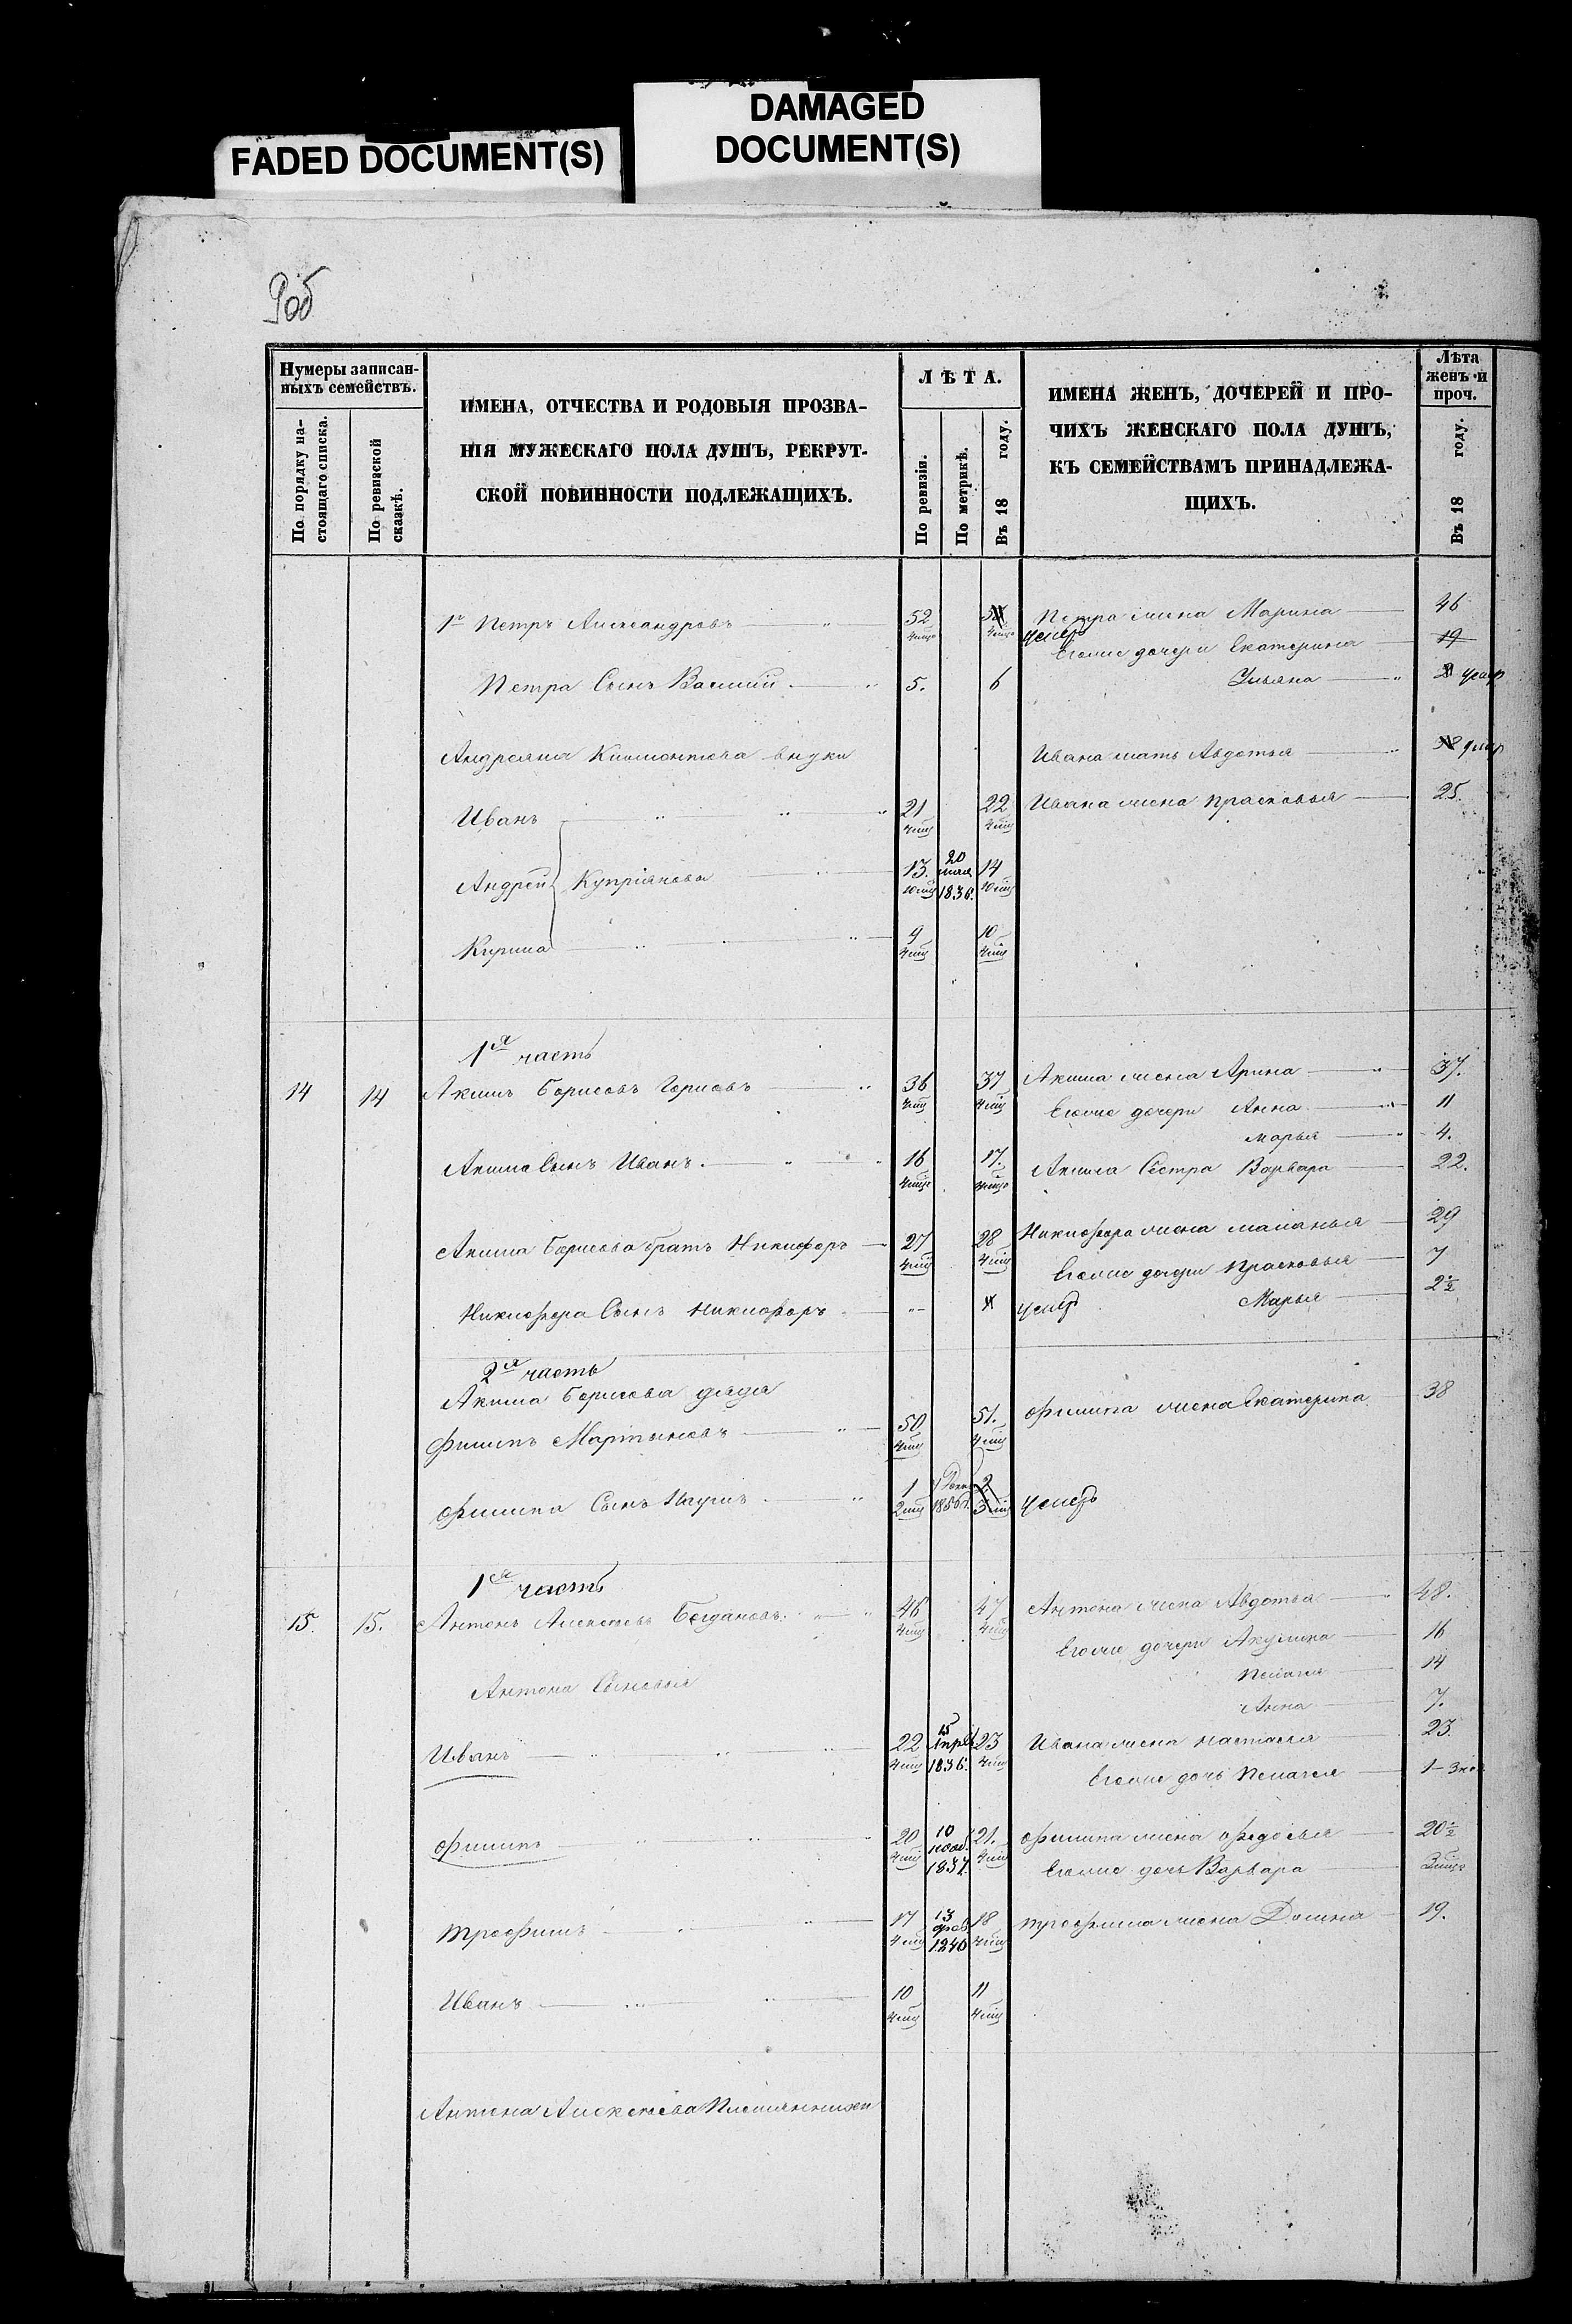 FADED DOCUMENT(S)
DAMAGED
DOCUMENT(S)
9об
Нумеры записан-
ныхъ семействъ.
По порядку на-
стоящаго списка.
По ревизской
сказкѣ.
ИМЕНА, ОТЧЕСТВА И РОДОВЫЯ ПРОЗВА-
НІЯ МУЖЕСКАГО ПОЛА ДУШЪ, РЕКРУТ-
СКОЙ ПОВИННОСТИ ПОДЛЕЖАЩИХЪ.
ЛѢТА.
По ревизіи.
По метрикѣ.
Въ 18 году.
ИМЕНА ЖЕНЪ, ДОЧЕРЕЙ И ПРО-
ЧИХЪ ЖЕНСКАГО ПОЛА ДУШЪ,
КЪ СЕМЕЙСТВАМЪ ПРИНАДЛЕЖА-
ЩИХЪ.
Лѣта
женъ и
проч.
Въ 18 году.
Петръ Александровъ 52 Петра жена Марина 46
умеръ
Его же дочери Екатерина 19
Петра Сынъ Василий 5. 6 Ульяна умер
Андреяна внуки Ивана мать Авдотья умер
Иванъ 21 22 Ивана жена Прасковья 25.
Андрей Купріянова 13. 20 мая 1836. 14
Кирила 9 10
1я часть
14 14 Акимъ Борисовъ Борисовъ 36 37 Акима жена Арина 37.
Его же дочери Анна 11
Марья 4.
Акима Сынъ Иванъ. 16 17. Акима Сестра Варвара 22.
Акима Борисова братъ Никифоръ 27 28 Никифора жена Маланья 29
Его же дочери Прасковья 7
Никифора Сынъ Никифоръ умеръ Марья 2½
2я часть
Акима Борисова дядя
Филипъ Мартыновъ 50 51. Филипа жена Екатерина 38
Филипа Сынъ 1 2 умеръ
1я часть
15. 15. Антонъ Алексѣевъ Богдановъ. 46 47 Антона жена Авдотья 48.
Его же дочери Акулина 16
Антона Сыновья Пелагея 14
Анна 7.
Иванъ 22 15 Апрѣ 1836. 23 Ивана жена Настасья 23.
Его же дочь Пелагея
Филипъ 20 10 нояб. 1837. 21. Филипа жена Федосья 20½
Его же дочь Варвара
Трофимъ 17 13 фев. 1840 18 Трофима жена Домна 19.
Иванъ 10 11
Антона Алексѣева Племянники